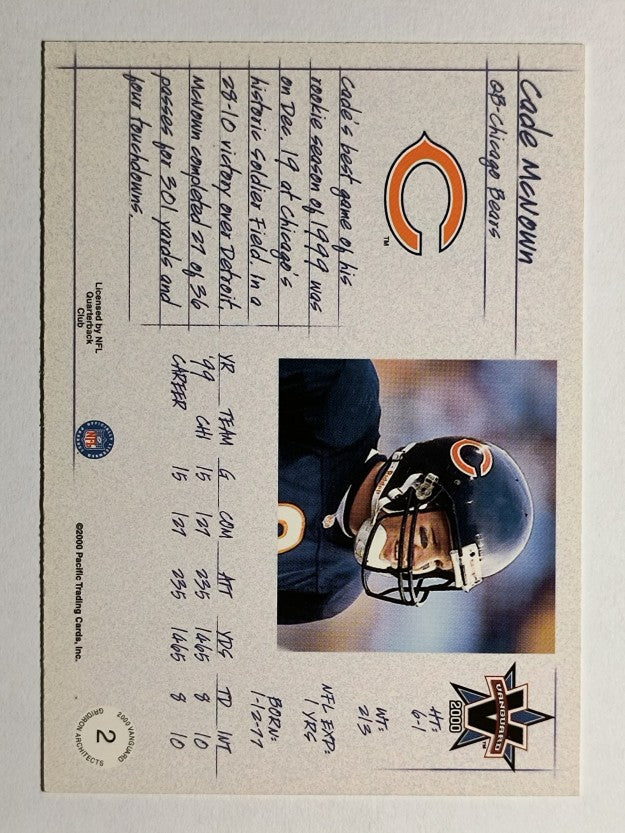 Cade McNown
QB-Chicago Bears
TM
Cade's best game of his
rookie season of 1999 was
on Dec. 19 at Chicago's
historic Soldier Field. In a
28-10 victory over Detroit,
McNown completed 27 of 36
passes for 301 yards and
four touchdowns.
VANGUARD
2000
TM
HT:
6-1
WT:
213
NFL EXP:
1 YRS
BORN:
1-12-77
YR TEAM G COM ATT YDS TD INT
'99 CHI 15 127 235 1465 8 10
CAREER 15 127 235 1465 8 10
Licensed by NFL
Quarterback
Club
OFFICIALLY LICENSED
NFL
©2000 Pacific Trading Cards, Inc.
2000 VANGUARD
2
GRIDIRON ARCHITECTS